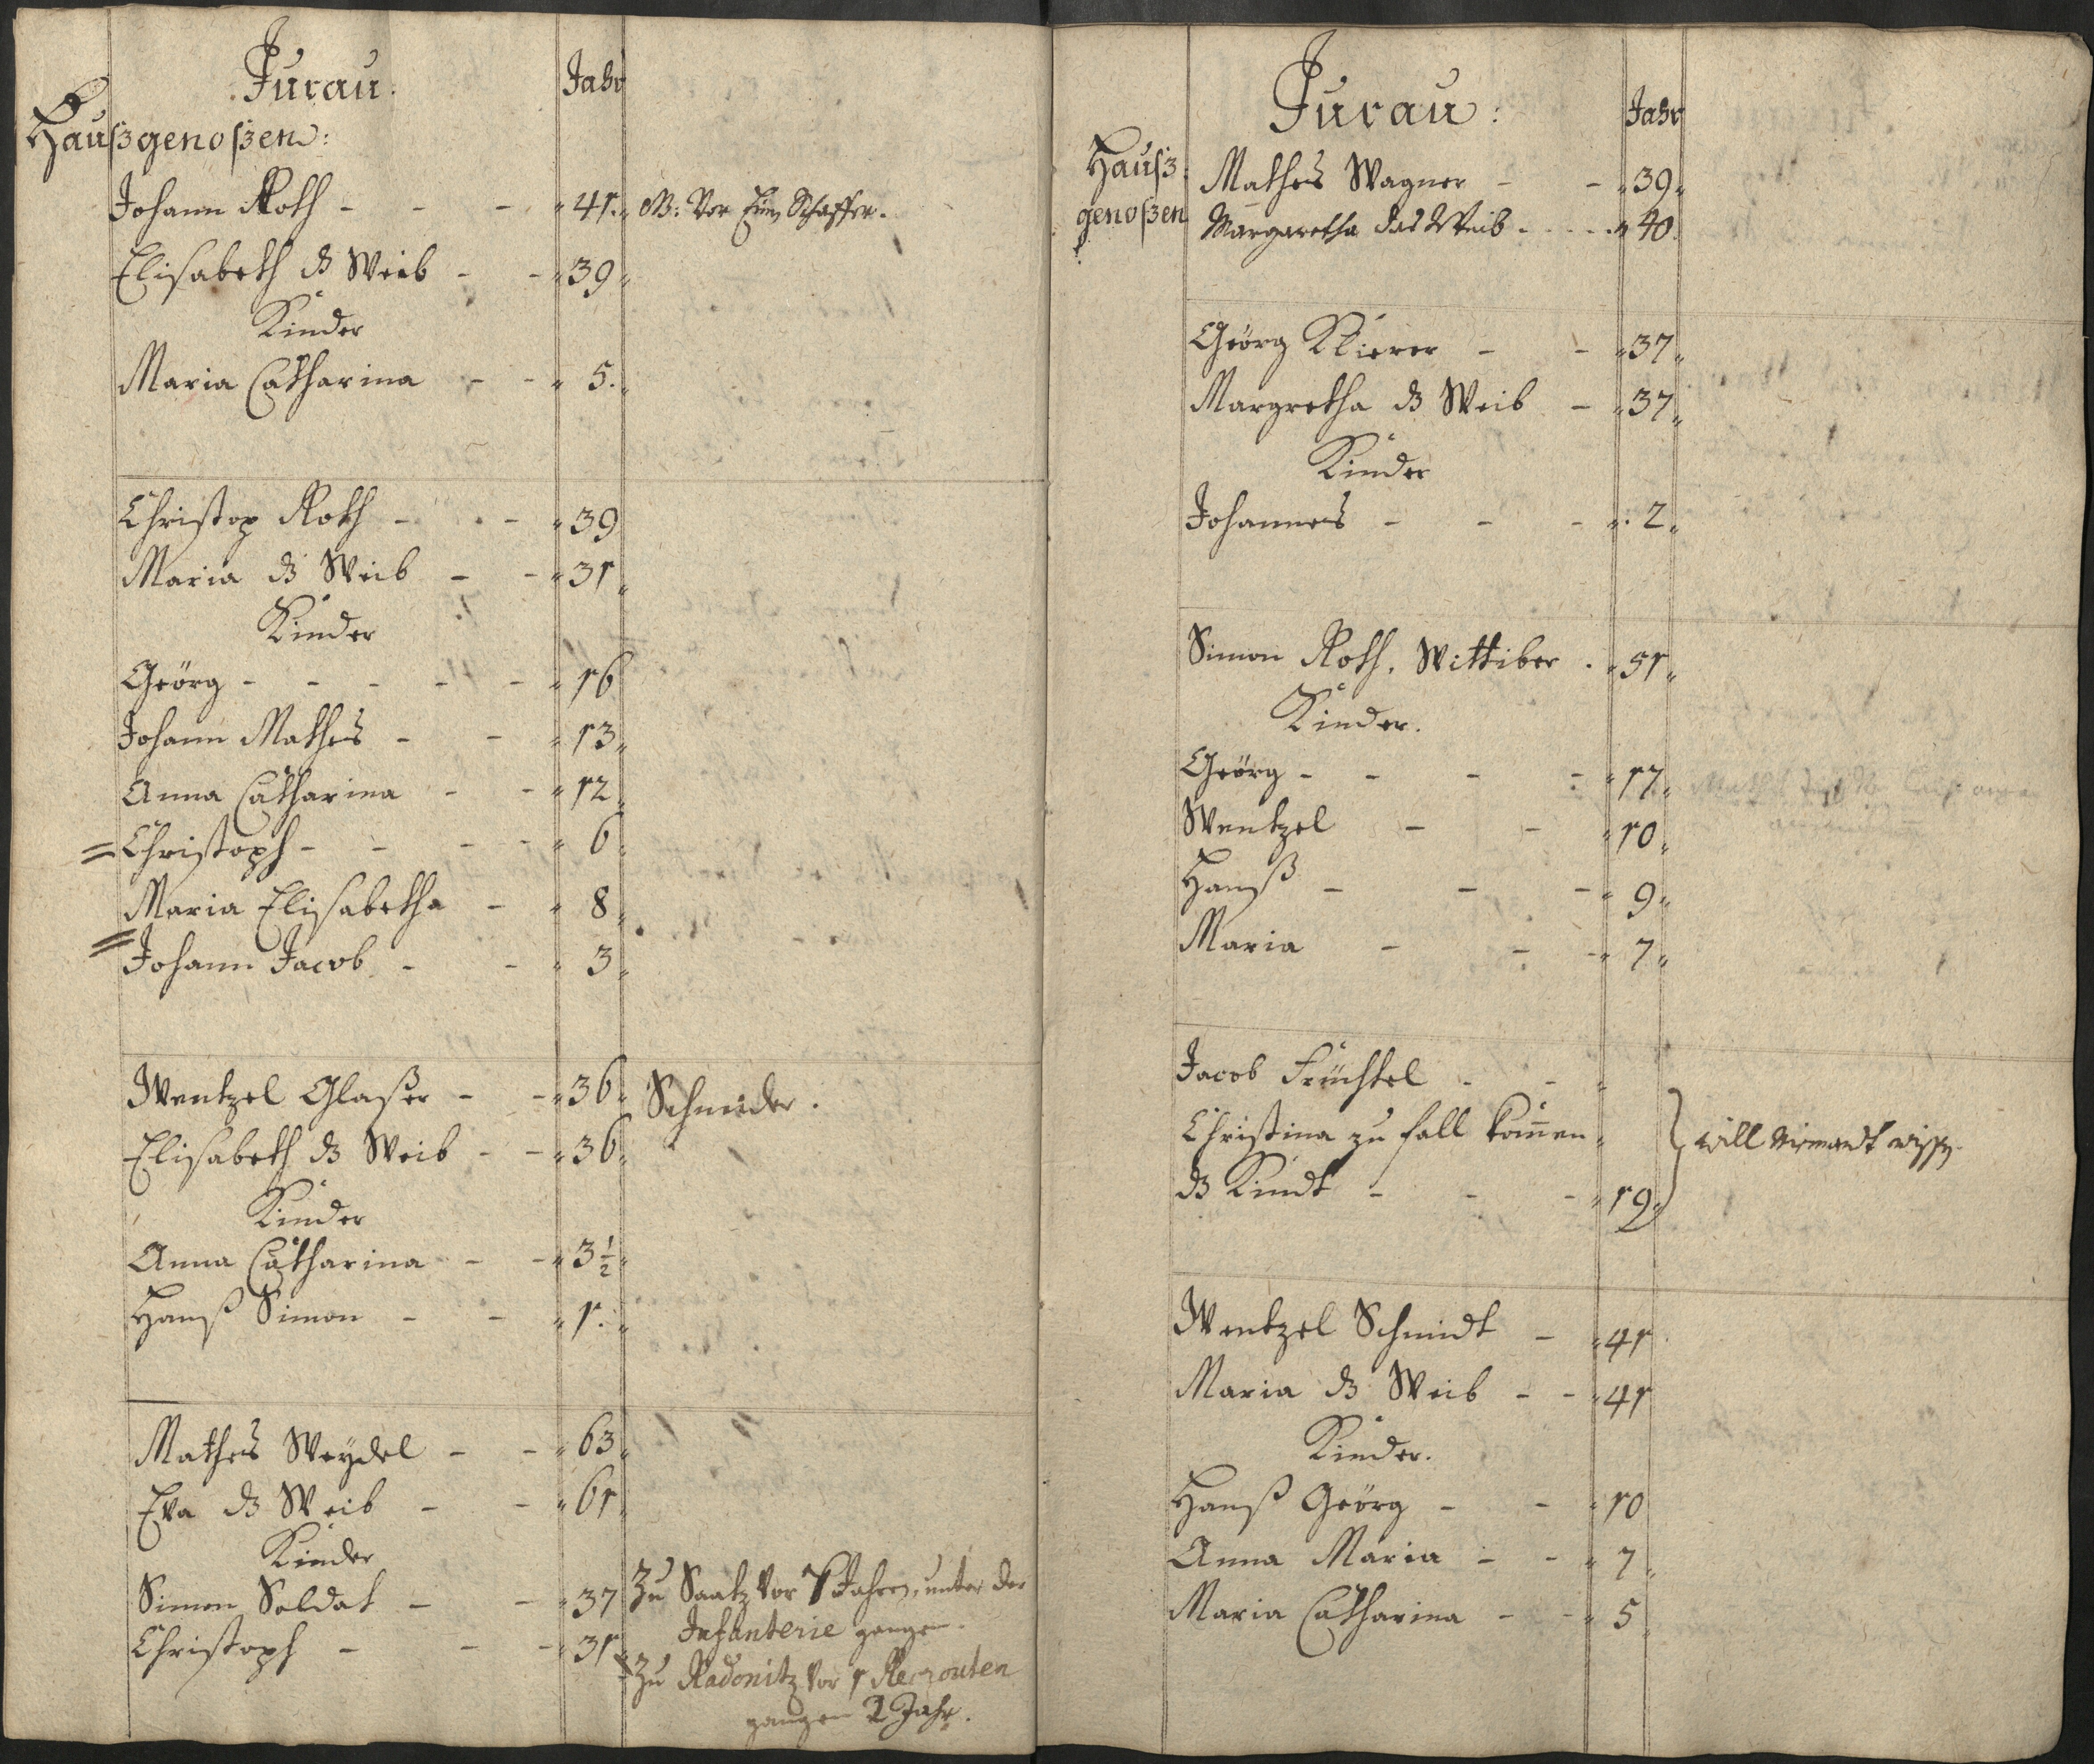 Jurau.
Jahr
Haußgenoßen:
Johann Roth - - - 41. M: Vor Ein Schaffer.
Elisabeth ds Weib - - 39
Kinder
Maria Catharina - - 5.
Christop Roth - - 39
Maria ds Weib - - 31
Kinder
Geörg - - - - - 16
Johann Mathes - - 13
Anna Catharina - - 12
= Christoph - - - - 6
Maria Elisabetha - 8
= Johann Jacob - - 3
Wentzel Glaßer - - 36 Schneider.
Elisabeth ds Weib - - 36
Kinder
Anna Catharina - - 3 1/2
Hanß Simon - - 1.
Mathes Weydel - - 63
Eva ds Weib - - 61
Kinder
Simon Soldat - - 37 Zu Saatz Vor 7 Jahren, unter der
Infanterie gangen.
Christoph - - - 31
Zu Radonitz Vor 1 Recrouten
gangen 2 Jahr.
Jurau:
Jahr
Hauß
genoßen
Mathes Wagner - - 39
Margaretha das Weib - - - 40
Geörg Klierer - - 37
Margretha ds Weib - 37
Kinder
Johannes - - - 2
Simon Roth, Wittiber . 51
Kinder.
Geörg - - - - 17
Wentzel - - 10
Hanß - - - 9
Maria - - - 7
Jacob Früchtel - -
Christina zu fall kommen
will niemandt wissen.
ds Kindt - - - 19
Wentzel Schmidt - 41
Maria ds Weib - - 41
Kinder.
Hanß Geörg - - 10
Anna Maria - - 7
Maria Catharina - - 5